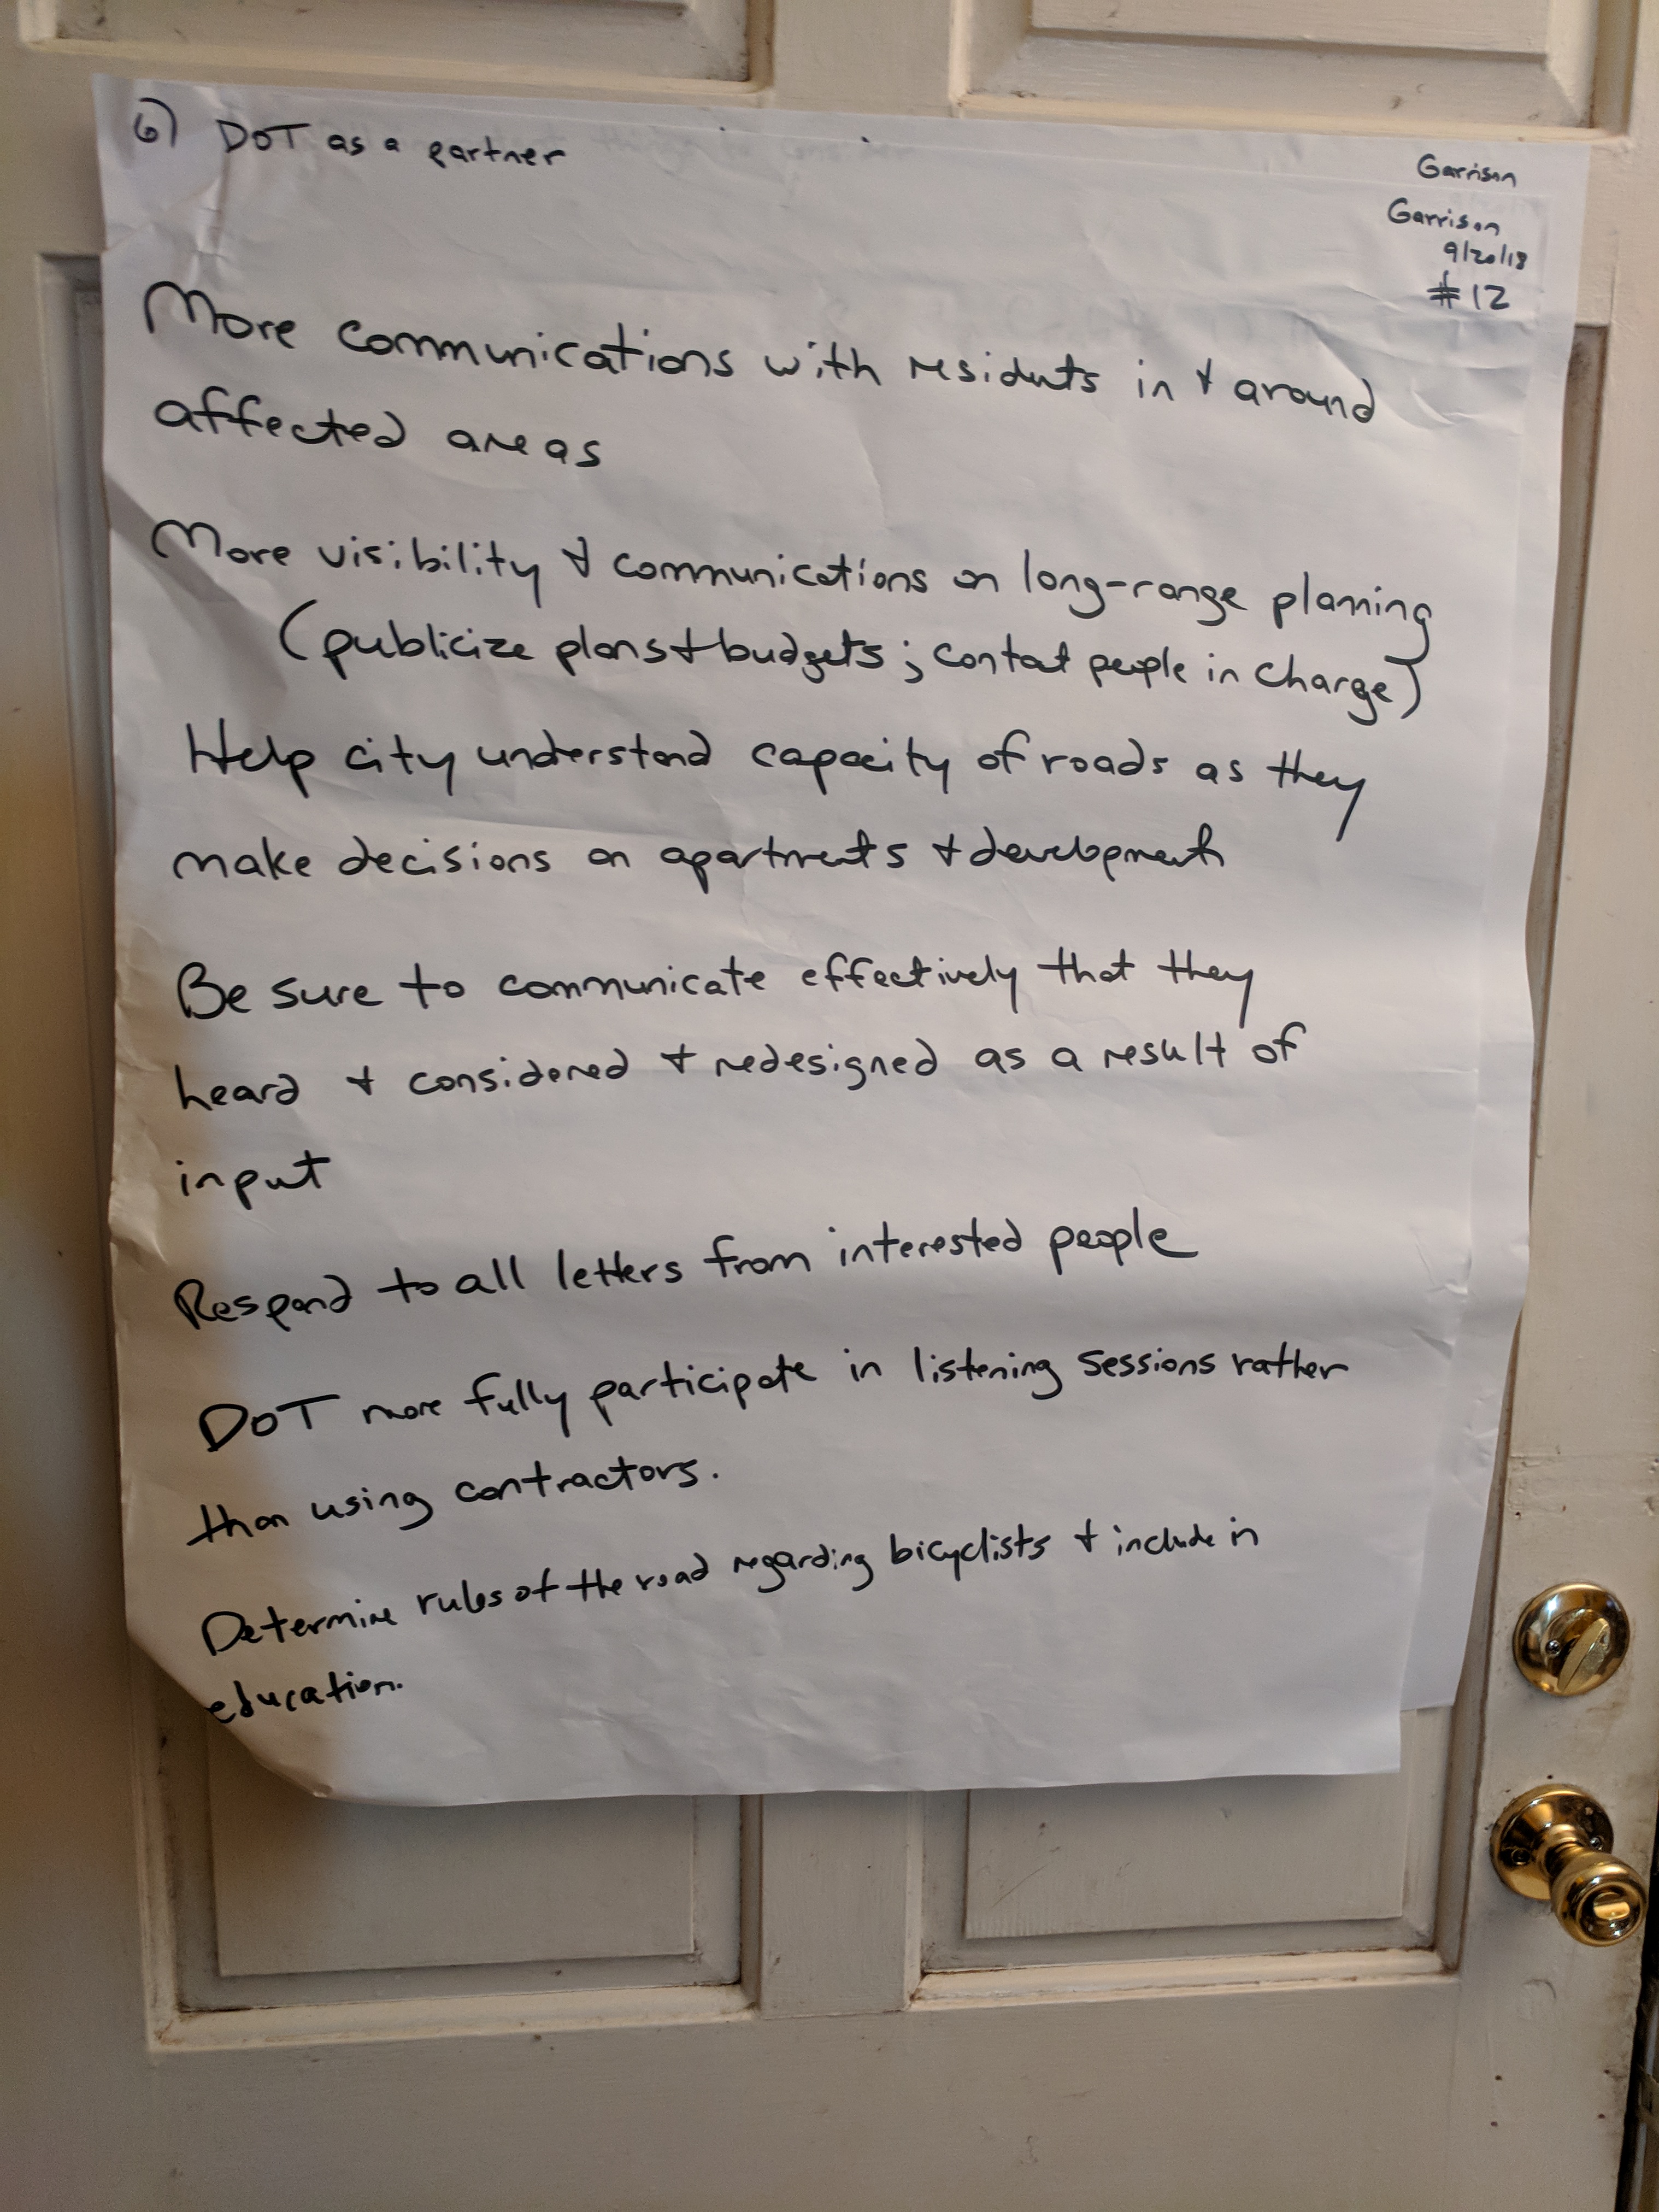 6) DOT as a partner
Garrison
Garrison
9/20/18
#12
More communications with residents in & around
affected areas
More visibility & communications on long-range planning
(publicize plans & budgets; contact people in charge)
Help city understand capacity of roads as they
make decisions on apartments & development
Be sure to communicate effectively that they
heard & considered & redesigned as a result of
input
Respond to all letters from interested people
DOT more fully participate in listening sessions rather
than using contractors.
Determine rules of the road regarding bicyclists & include in
education.